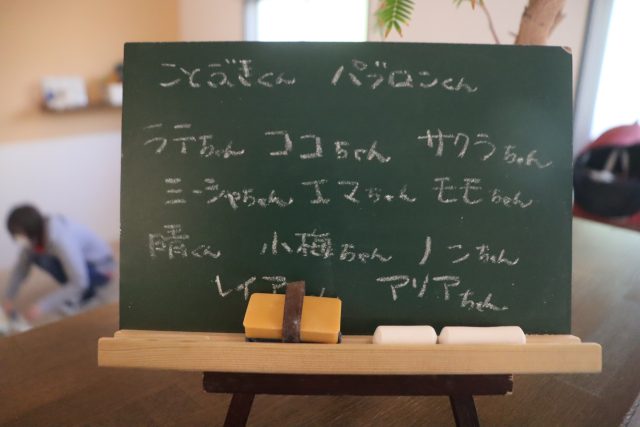 ことぶきくん パブロンくん
ラテちゃん ココちゃん サクラちゃん
ミーシャちゃん エマちゃん モモちゃん
晴くん 小梅ちゃん ノンちゃん
アリアちゃん